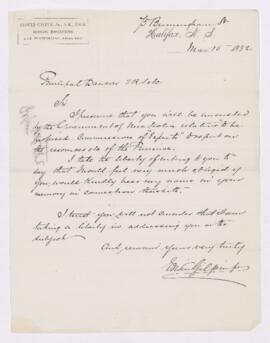 EDWIN GILPIN, Jr., A.M., F.G.S.
MINING ENGINEER
75 Birmingham St
Halifax, N. S
Mar 10th 1882
Principal Dawson F.R.S. etc
Sir
I presume that you will be consulted
by the Government of relative to
of experts to report on
the resources of the Province.
I take the liberty of writing to you to
say that I should feel very much obliged if
you would kindly bear my name in your
memory in connection therewith.
I trust you will not consider that I am
taking a liberty in addressing you on the
subject
And remain yours very truly
Edwin Gilpin Jr.